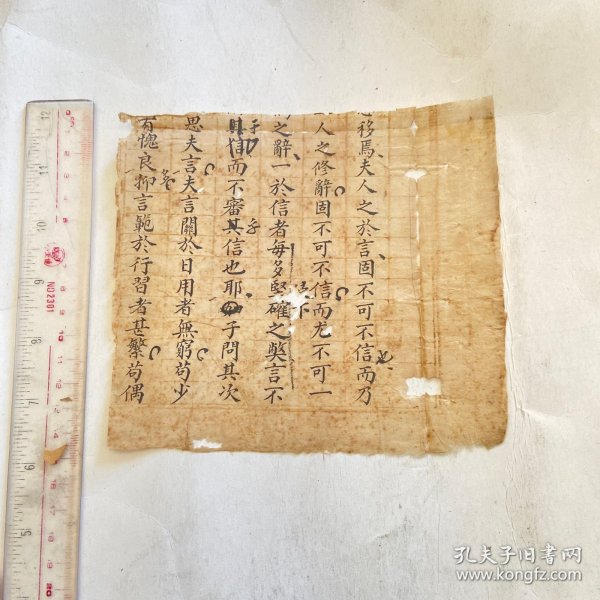 移焉夫人之於言固不可不信而乃
人之修辭固不可不信而尤不可一
之辭一於信者每多堅確之獘言不
其信而不審其信也耶子問其次
思夫言夫言關於日用者無窮苟少
有愧良抑言範於行習者甚繁苟偶
NO2301
孔夫子旧书网
www.kongfz.com